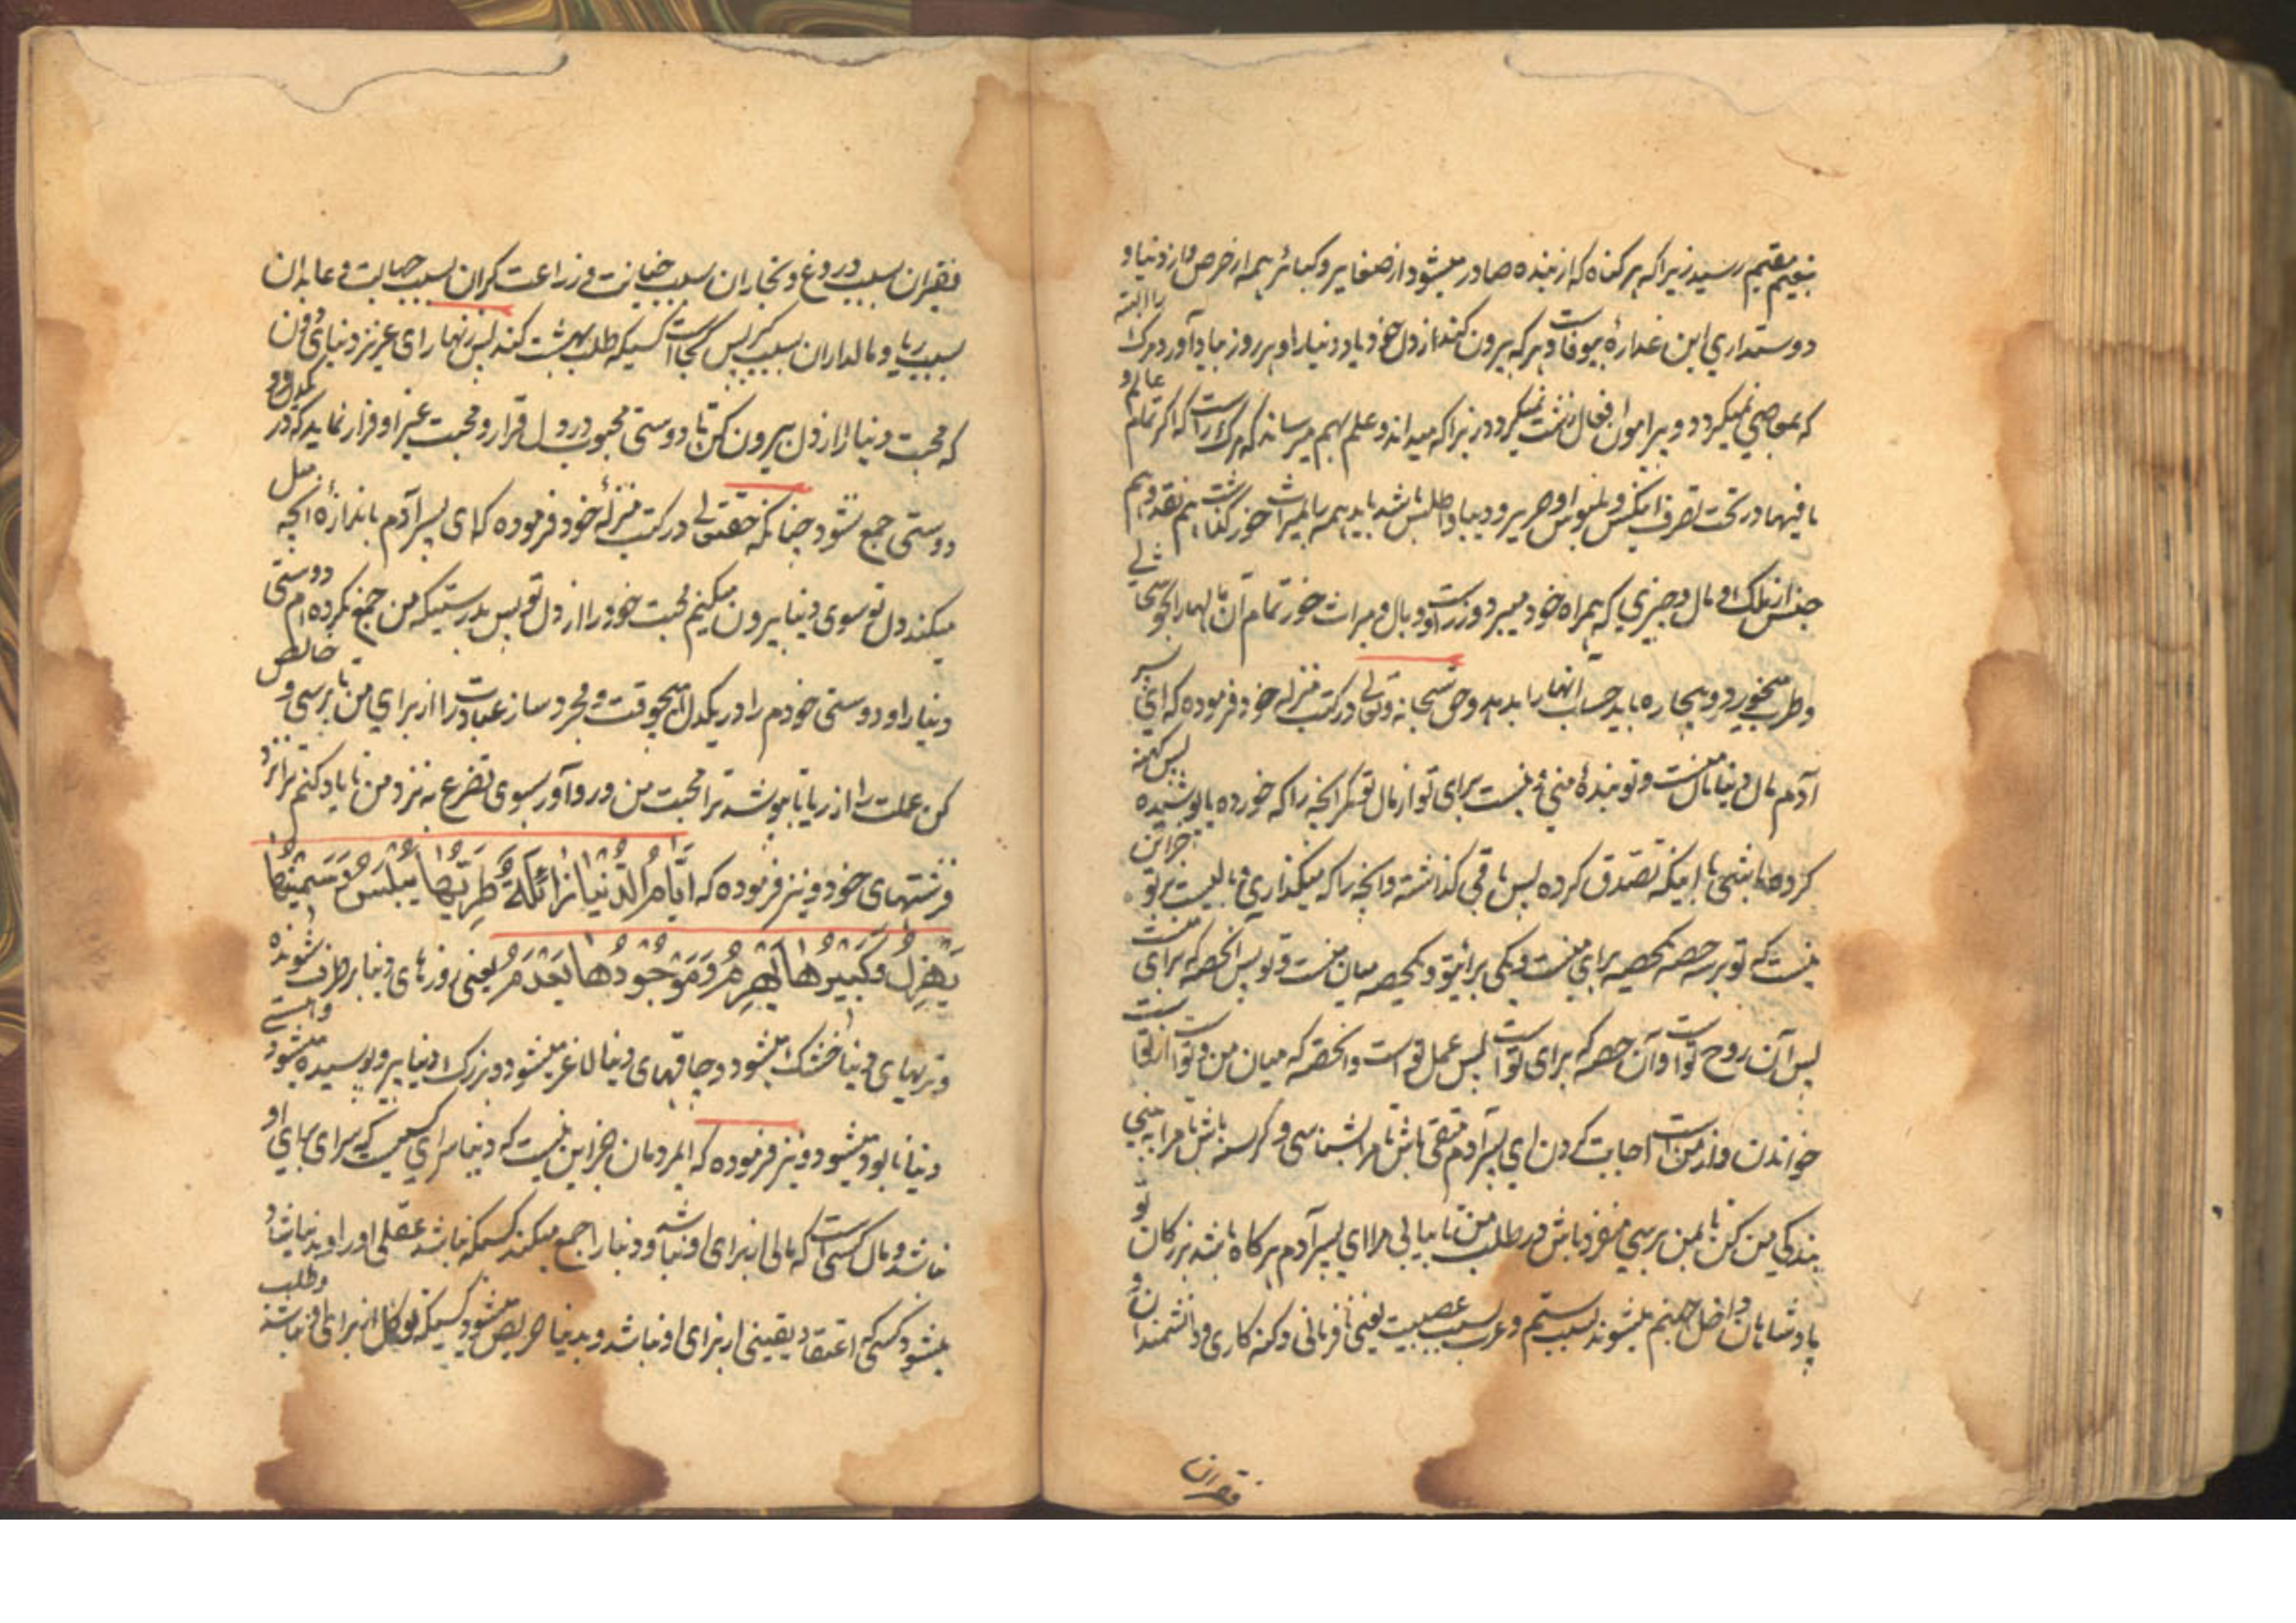 بنعیم مقیم رسید زیرا که هر کناه که از بنده صادر میشود از صغایر و کبائر همه از حرص و از دنیا و
دوستداری این غدارهٔ بیوفاست و هر که بیرون کند از دل خود یاد دنیا را و هر روز بیاد آورد مرک را البته
که بمعاصی نمیکردد و پیرامون افعال زشت نمیکردد زیرا که میداند و علم بهم میرساند که مرک راست که اکر تمام عالم و
ما فیها در تحت تصرف اینکس و ملبوس او حریر و دیبا و اطلس باشد باید همه را بمیراث خور کذاشت هم نقد و هم
جنس از ملک و مال و چیزی که همراه خود میبرد وزر است و وبال و میراث خور تمام آن مالها را بخوشحالی
و طرب میخورد و بیچاره باید حساب آنها را بدهد و حق سبحانه و تعالی در کتب منزله خود فرموده که ای پسر
آدم مال دنیا مال منست و تو بندهٔ منی و نیست برای تو از مال تو مکر انچه را که خورده یا پوشیده پس کهنه
کرده باشی یا اینکه تصدق کرده پس باقی کذاشته و انچه را که میکذاری وبالیست بر تو جز این
نیست که تو بر سه حصه یکحصه برای منست و یکی برای تو و یکحصه میان منست و تو پس انحصه که برای منست
پس آن روح تو است و آن حصه که برای تو است پس عمل تو است و انحصه که میان من و تو است از تو است
خواندن و از من است اجابت کردن ای پسر آدم متقی باش تا مرا بشناسی و کرسنه باش تا مرا ببینی
بندکی من کن تا بمن برسی منفرد باش در طلب من تا بیابی مرا ای پسر آدم هرکاه باشد بزرکان تو
پادشاهان داخل جهنم میشوند بسبب ستم و عرب بسبب عصبیت یعنی نافرمانی و کنه کاری و دانشمندان و
فقیران
فقیران بسبب دروغ و تجاران بسبب خیانت و زراعت کران بسبب جهالت و عابدان
بسبب ریا و مالداران بسبب کبر پس کجا است کسیکه طلب بهشت کند پس زنهار ای عزیز دنیای دون
که محبت دنیا را از دل بیرون کن تا دوستی محبوب در دل قرار و محبت غیر او فرار نماید که در یکدل دو
دوستی جمع نشود چنانکه حقتعالی در کتب منزلهٔ خود فرموده که ای پسر آدم باندازهٔ انچه میل
میکند دل تو سوی دنیا بیرون میکنیم محبت خود را از دل تو پس بدرستیکه من جمع نکرده ام دوستی
دنیا را و دوستی خودم را در یکدل هیچوقت و مجرد ساز عبادت را از برای من تا برسی و خالص
کن عملت را از ریا تا بپوشد ترا محبت من و رو آور بسوی تضرع به نزد من تا یاد کنم ترا نزد
فرشتهای خود و نیز فرموده که اَیَّامُ الدُّنْیَا زٰائِلَةٌ وَطَرِیُّهَا یَیْبَسُ وَسَمِیْنُهَا
یَهْزِلُ وَکَبِیْرُهَا یَهْرِمُ وَمَوْجُوْدُهَا یَعْدَمُ یعنی روزهای دنیا بر طرف شونده
و تریهای دنیا خشک میشود و چاقهای دنیا لاغر میشود و بزرک دنیا پیر و پوسیده میشود و هستی
دنیا نابود میشود و نیز فرموده که ایمردمان جز این نیست که دنیا سرای کسیست که سرای برای او
نباشد و مال کسی است که مالی از برای او نباشد و دنیا را جمع میکند کسیکه نباشد عقلی او را و بدنیا شاد
میشود کسی که اعتقاد یقینی از برای او نباشد و بدنیا حریص میشود کسیکه توکل از برای او نباشد و طلب